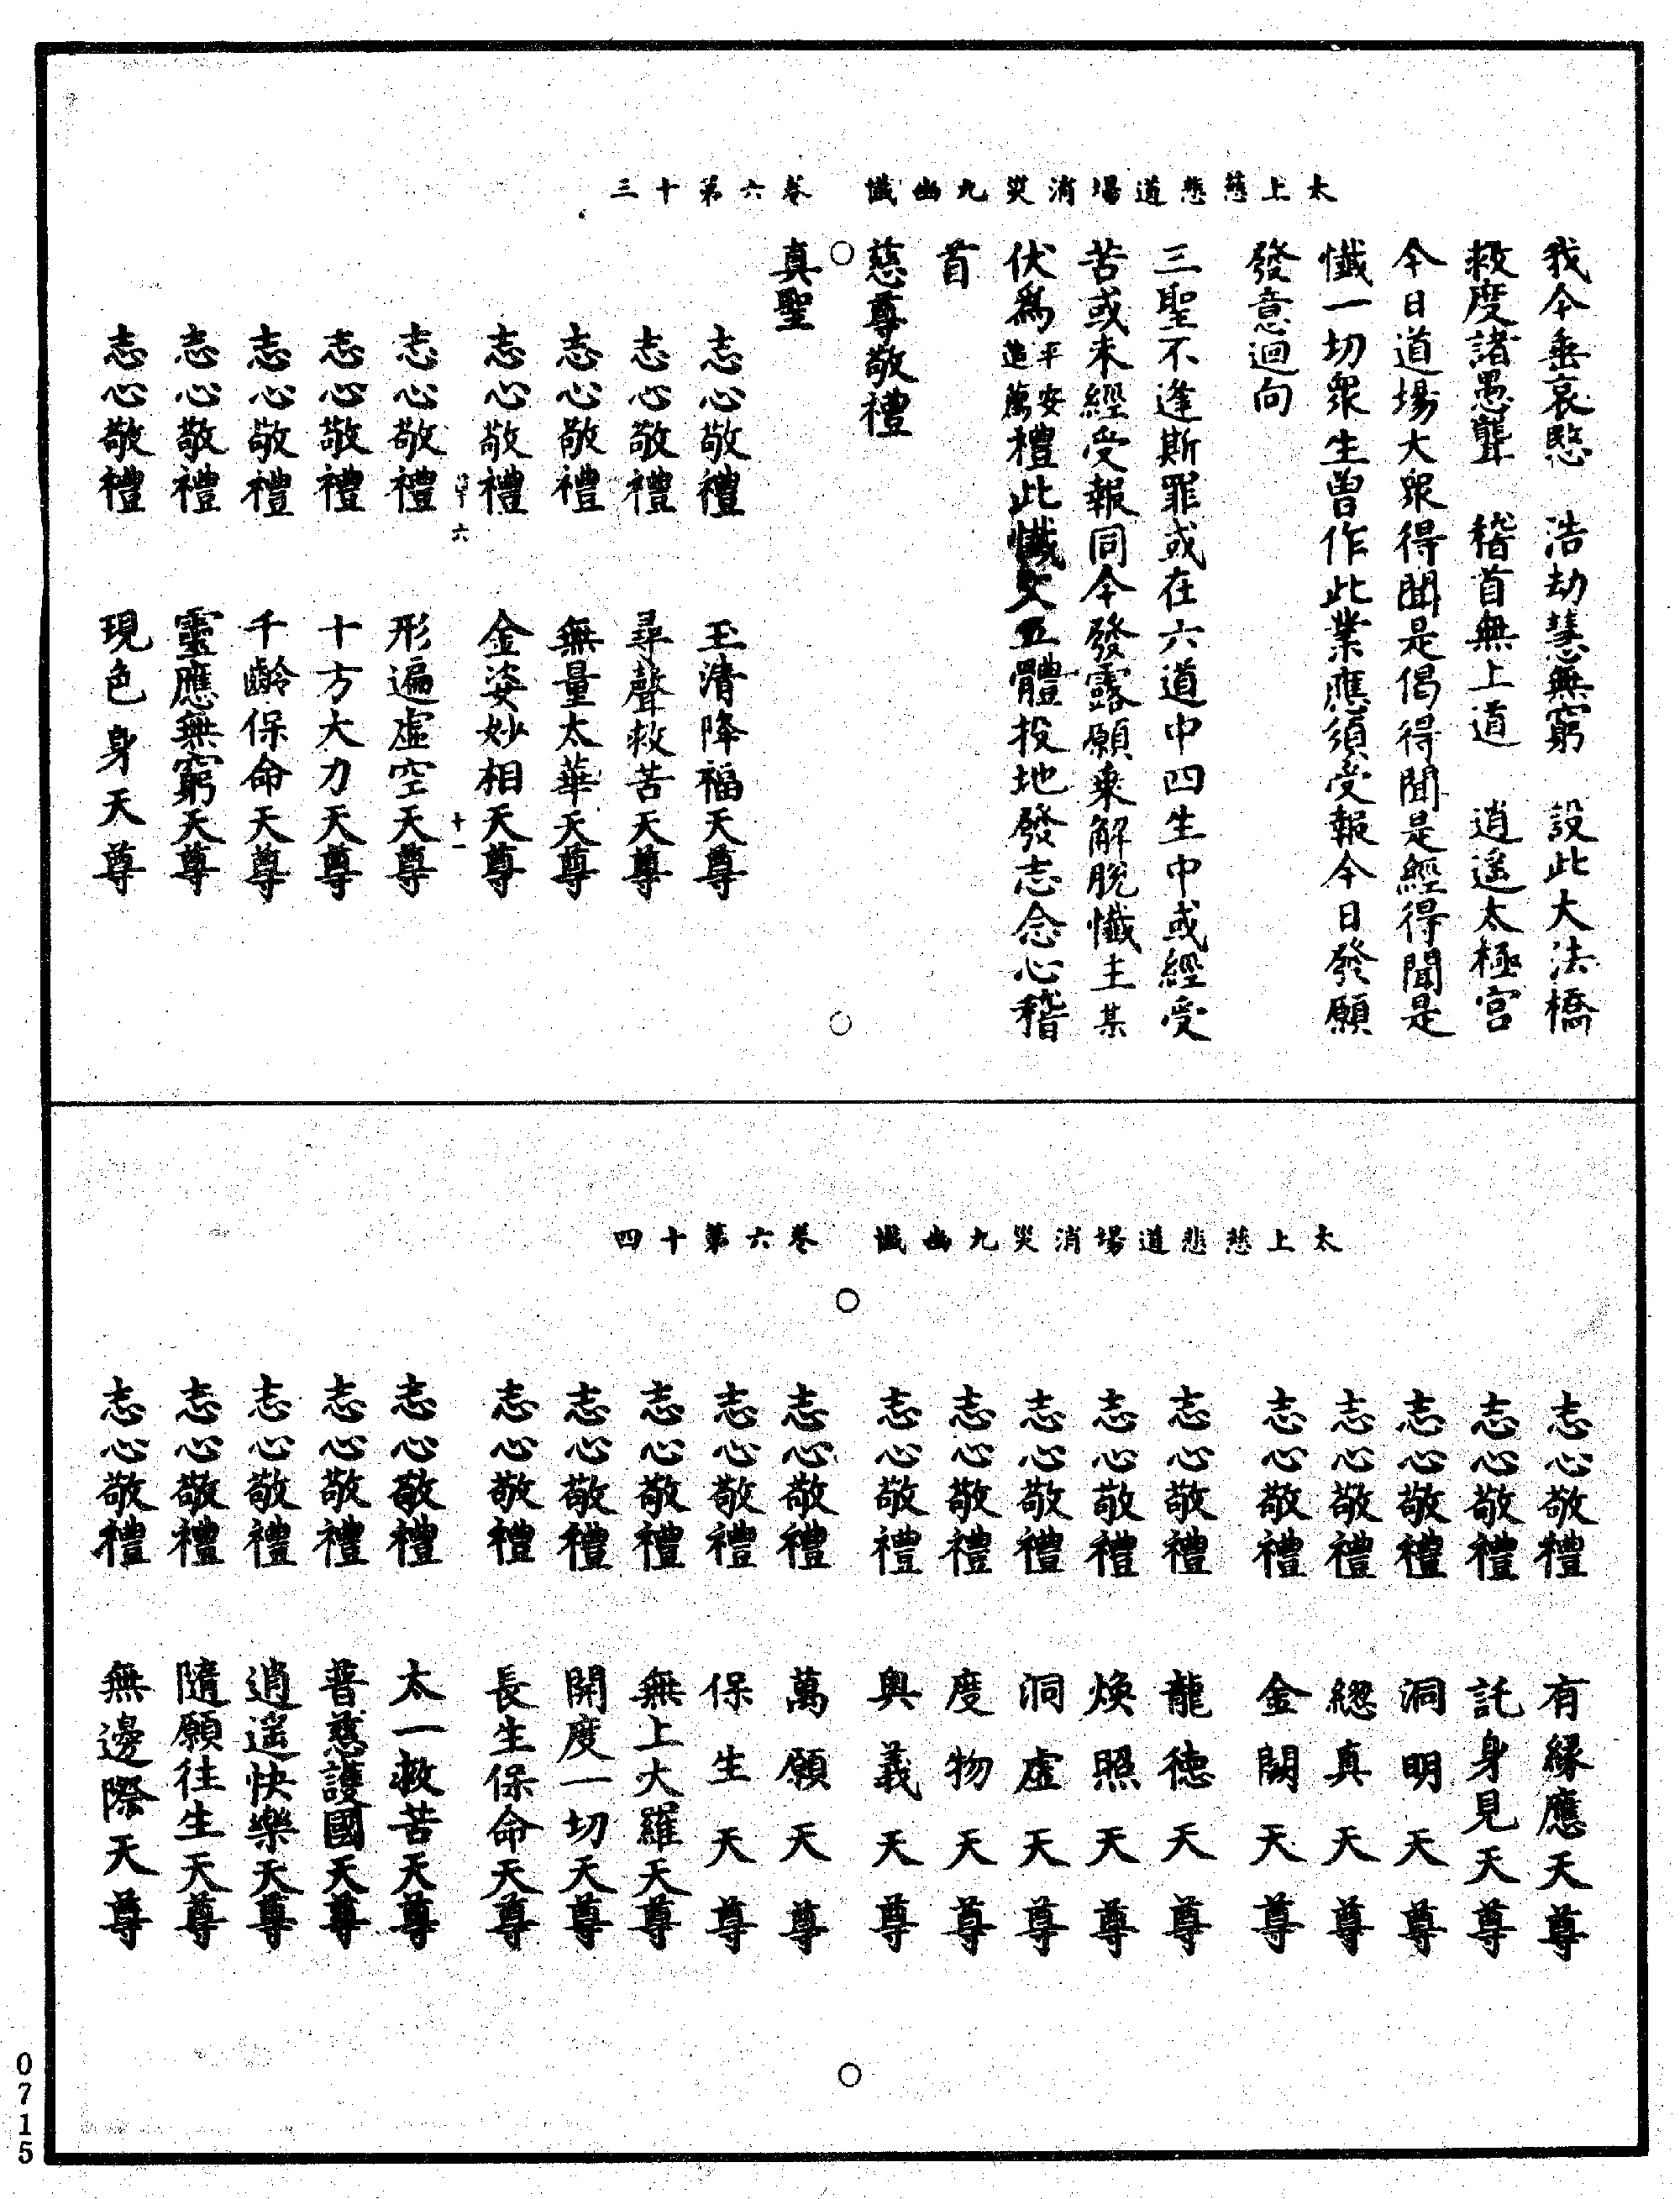 太上慈悲道場消災九幽懺　卷六　第十三
我今垂哀愍　浩劫慧無窮　設此大法橋
救度諸愚聾　稽首無上道　逍遥太極宫
今日道場大衆得聞是偈得聞是經得聞是
懺一切衆生曽作此業應須受報今日發願
發意迴向
三聖不逢斯罪或在六道中四生中或經受
苦或未經受報同今發露願乗解脱懺主某
伏爲平安追薦禮此懺文五體投地發志念心稽
首
慈尊敬禮
真聖
志心敬禮　玉清降福天尊
志心敬禮　尋聲救苦天尊
志心敬禮　無量太華天尊
志心敬禮　金姿妙相天尊
六　十一
志心敬禮　形遍虚空天尊
志心敬禮　十方大力天尊
志心敬禮　千齡保命天尊
志心敬禮　靈應無窮天尊
志心敬禮　現色身天尊
太上慈悲道場消災九幽懺　卷六　第十四
志心敬禮　有緣應天尊
志心敬禮　託身見天尊
志心敬禮　洞明天尊
志心敬禮　總真天尊
志心敬禮　金闕天尊
志心敬禮　龍德天尊
志心敬禮　焕照天尊
志心敬禮　洞虚天尊
志心敬禮　度物天尊
志心敬禮　奥義天尊
志心敬禮　萬願天尊
志心敬禮　保生天尊
志心敬禮　無上大羅天尊
志心敬禮　開度一切天尊
志心敬禮　長生保命天尊
志心敬禮　太一救苦天尊
志心敬禮　普慈護國天尊
志心敬禮　逍遥快樂天尊
志心敬禮　隨願往生天尊
志心敬禮　無邊際天尊
0715